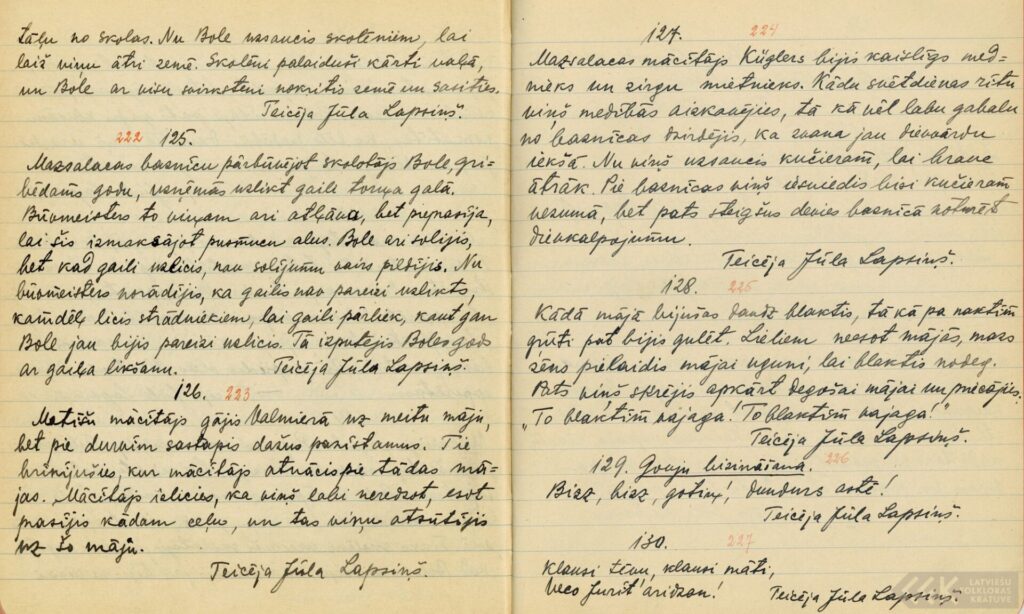 tāļu no skolas. Nu Bole uzsaucis skolēniem, lai
laiž viņu ātri zemē. Skolēni palaiduši kārti vaļā,
un Bole ar visu virksteni nokritis zemē un sasities.
Teicēja Jūla Lapsiņš.
222 125.
Mazsalacas baznīcu pārbūvējot skolotājs Bole, gri-
bēdams godu, uzņēmās uzlikt gaili torņa galā.
Būvmeisters to viņam ari atļāva, bet pieprasīja,
lai šis izmaksājot pusmucu alus. Bole ari solījis,
bet kad gaili uzlicis, nav solījumu vairs pildījis. Nu
būvmeisters norādījis, ka gailis nav pareizi uzlikts,
kamdēļ licis strādniekiem, lai gaili pārliek, kaut gan
Bole jau bijis pareizi uzlicis. Tā izputējis Boles gods
ar gaiļa likšanu. Teicēja Jūla Lapsiņš.
126. 223
Matīšu mācītājs gājis Valmierā uz meitu māju,
bet pie durvim sastapis dažus pazīstamus. Tie
brīnījušies, kur mācītājs atnācis pie tādas mā-
jas. Mācītājs izlicies, ka viņš labi neredzot, esot
prasījis kādam ceļu, un tas viņu atsūtījis
uz šo māju.
Teicēja Jūla Lapsiņš.
127. 224
Mazsalacas mācītājs Küglers bijis kaislīgs med-
nieks un zirgu mietnieks. Kādu svētdienas rītu
viņš medībās aizkavējies, tā kā vēl labu gabalu
no baznīcas dzirdējis, ka zvana jau dievvārdu
iekšā. Nu viņš uzsaucis kučieram, lai brauc
ātrāk. Pie baznīcas viņš iesviedis bisi kučieram
vezumā, bet pats steigšus devies baznīcā noturēt
dievkalpojumu.
Teicēja Jūla Lapsiņš.
128. 225
Kādā mājā bijušas daudz blaktis, tā kā pa naktīm
grūti pat bijis gulēt. Lieliem neesot mājās, mazs
zēns pielaidis mājai uguni, lai blaktis nodeg.
Pats viņš skrējis apkārt degošai mājai un priecājies:
"To blaktīm vajaga! To blaktīm vajaga!"
Teicēja Jūla Lapsiņš.
129. Govju bizināšana. 226
Bizz, bizz, gotiņ!, dundurs astē!
Teicēja Jūla Lapsiņš.
130. 227
Klausi tēvu, klausi māti,
Veco Jurīt' aridzan! Teicēja Jūla Lapsiņš.
LATVIEŠU
FOLKLORAS
KRĀTUVE